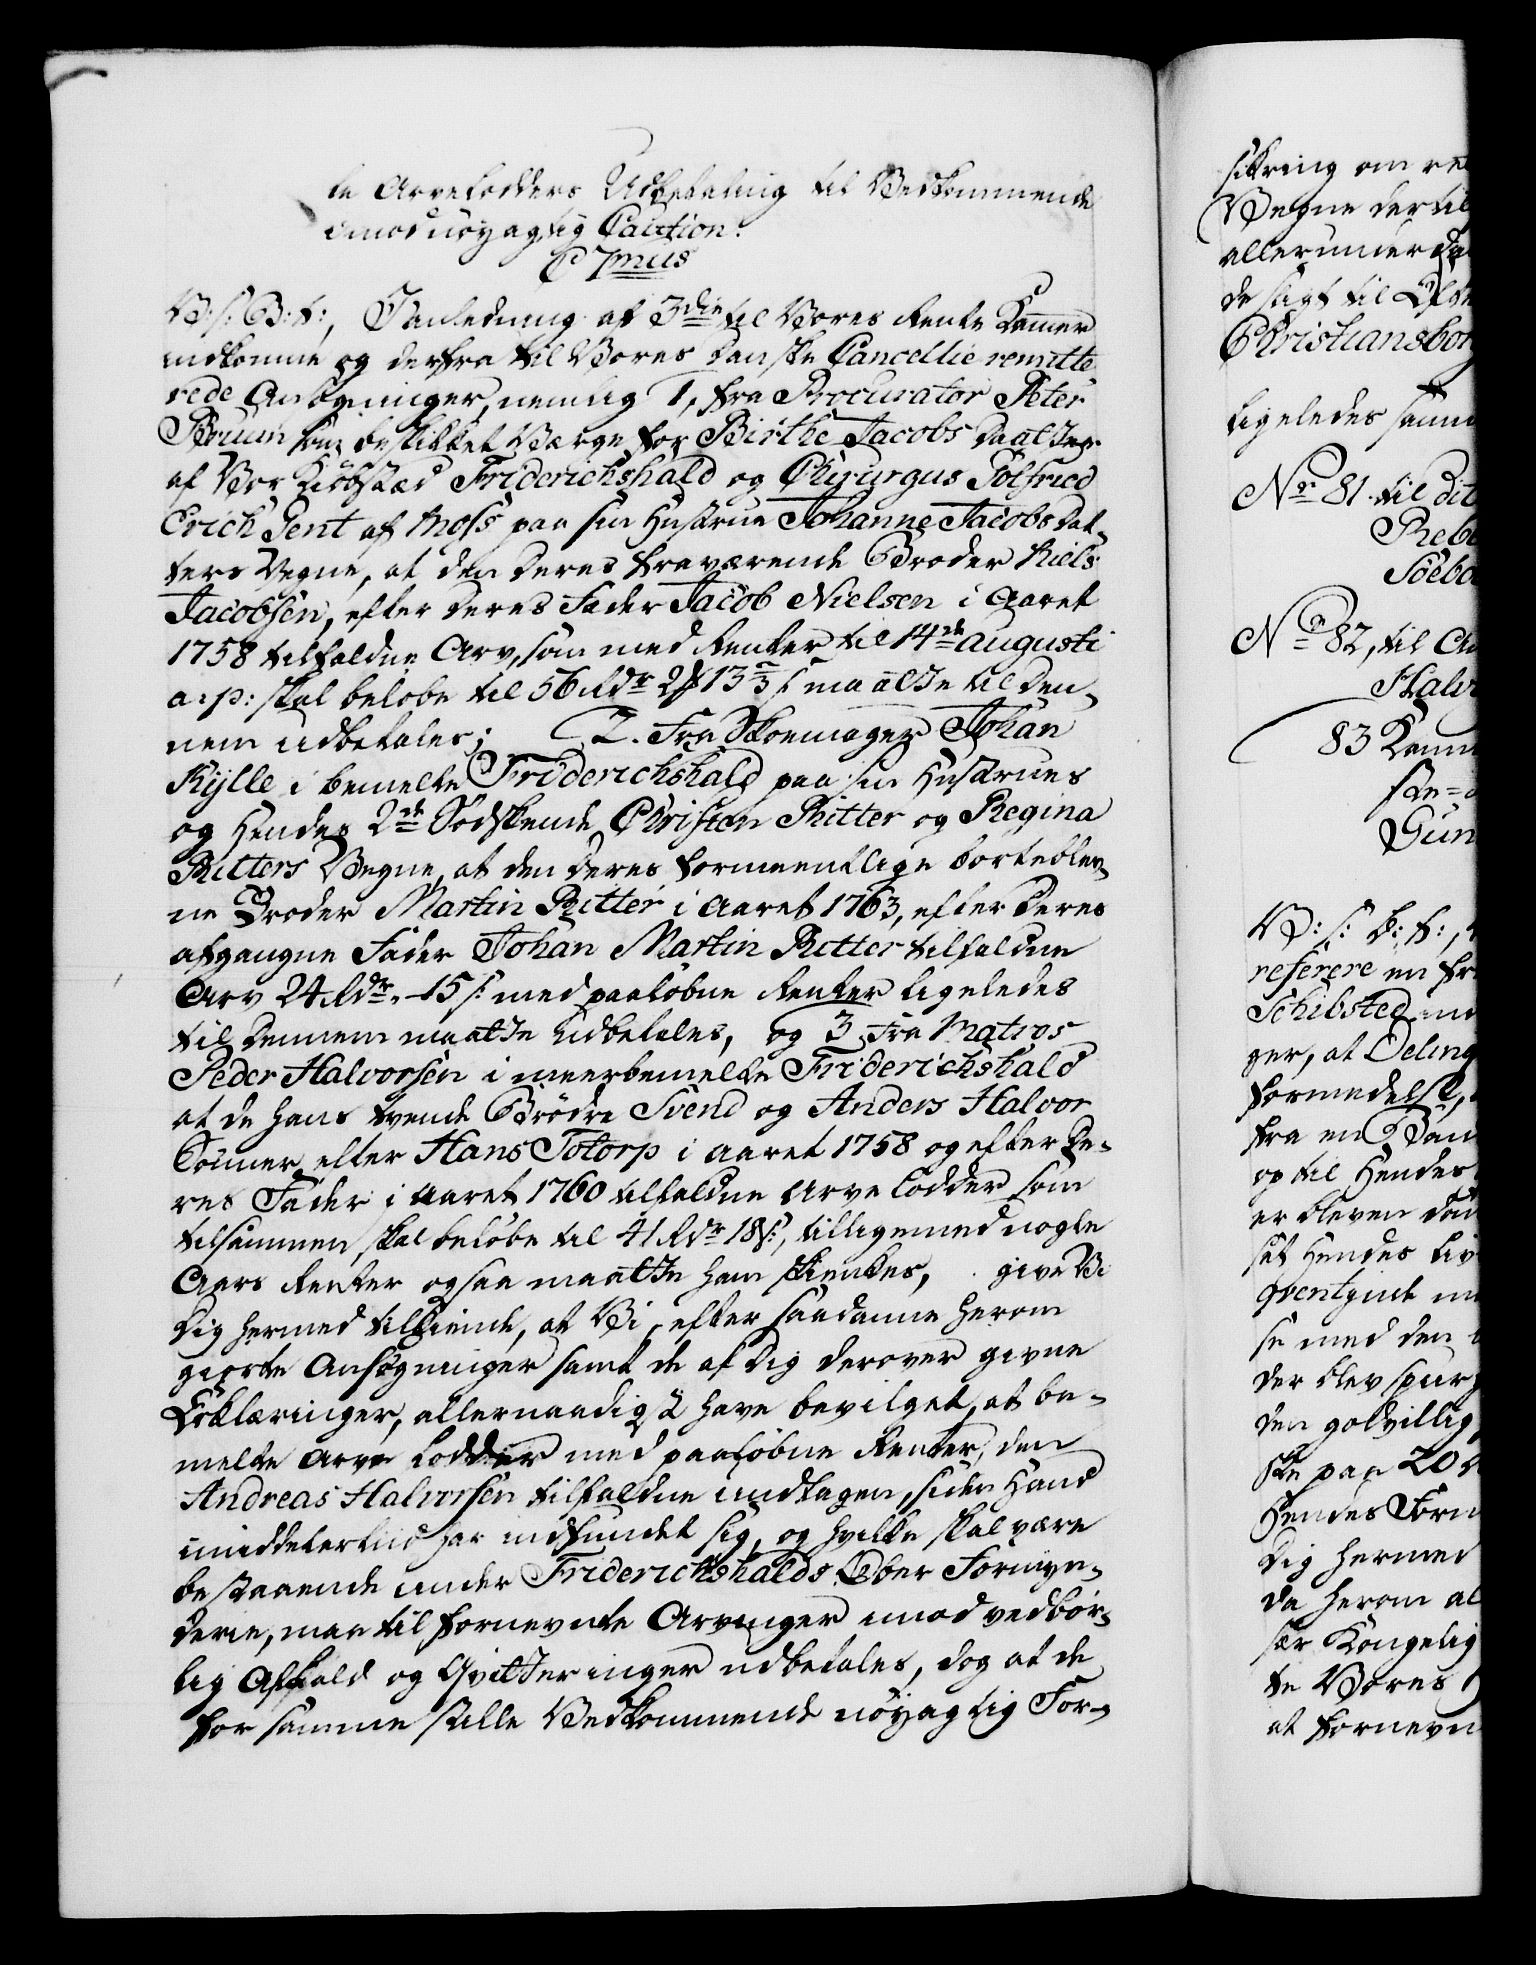 te Arvelodders Udbetaling til Vedkommende
imod nøyagtig Caution.
C 7mus
V: s: G: t:, I Anledning af 3de til Vores Rente Kammer
indkomne og derfra til Vores Danske Cancellie remitte
rede Ansøgninger, nemlig 1, fra Procurator Peter
Bruun som beskikket Værge for Birthe Jacobs Daatter
af Vor Kiøbstæd Friderichshald og Chirurgus Gotfried
Erich Gent af Moss paa sin Hustrue Johanne Jacobs Dat-
ters Vegne, at den deres fraværende Broder Niels
Jacobsen, efter deres Fader Jacob Nielsen i Aaret
1758 tilfaldne Arv, som med Renter til 14de Augusti
a: p: skal beløbe til 56 Rdr 2 13 s maatte til den-
nem udbetales; 2. Fra Skoemager Johan
Kylle i bemelte Friderichshald paa sin Hustrues
og Hendes 2de Sødskende Christen Ritter og Regina
Ritters Vegne, at den deres formeentlige bortebler-
ne Broder Martin Ritter i Aaret 1763, efter deres
afgangne Fader Johan Martin Ritter tilfaldne
Arv 24 Rdr. 15 s med paaløbne Renter ligeledes
til dennem maatte udbetales, og 3 Fra Matros
Peder Halvorsen i meerbemelte Friderichshald
at de hans tvende Brødre Svend og Anders Halvor
Sønner efter Hans Totorp i Aaret 1758 og efter De-
res Fader i Aaret 1760 tilfaldne Arve Lodder som
tilsammen skal beløbe til 41 Rdr 18 s:, tilligemed nogle
Aars Renter ogsaa maatte ham skienkes, give Vi
Dig hermed tilkiende, at Vi, efter saadanne herom
giorte Ansøgninger samt de af Dig derover givne
Erklæringer, allernaadigst have bevilget, at be-
melte Arve Lodder med paaløbne Renter, den
Andreas Halvorsen tilfaldne undtagen, siden Hand
imiddelertiid har indfundet sig, og hvilke skal være
bestaaende under Friderichshalds Ober Formyn-
derie, maa til fornevnte Arvinger imod vedbør-
lig Afkald og Qvitteringer udbetales, dog at de
for samme stille Vedkommende nøyagtig For-
sikring om
Vegne der til
allerunder
de sagt til
Christiansborg
Ligeledes
Nr 81. til
Nr 82, til
Halv
83
V: s: G: t:,
referere en
Schibsted
ger, at
formedelst,
fra en
op til Hendes
er bleven
sit Hendes
se med den
der blev
den godvillig
ste paa 20
Hendes
Dig hermed
da herom
sær Kongelig
te Vores
at fornevn